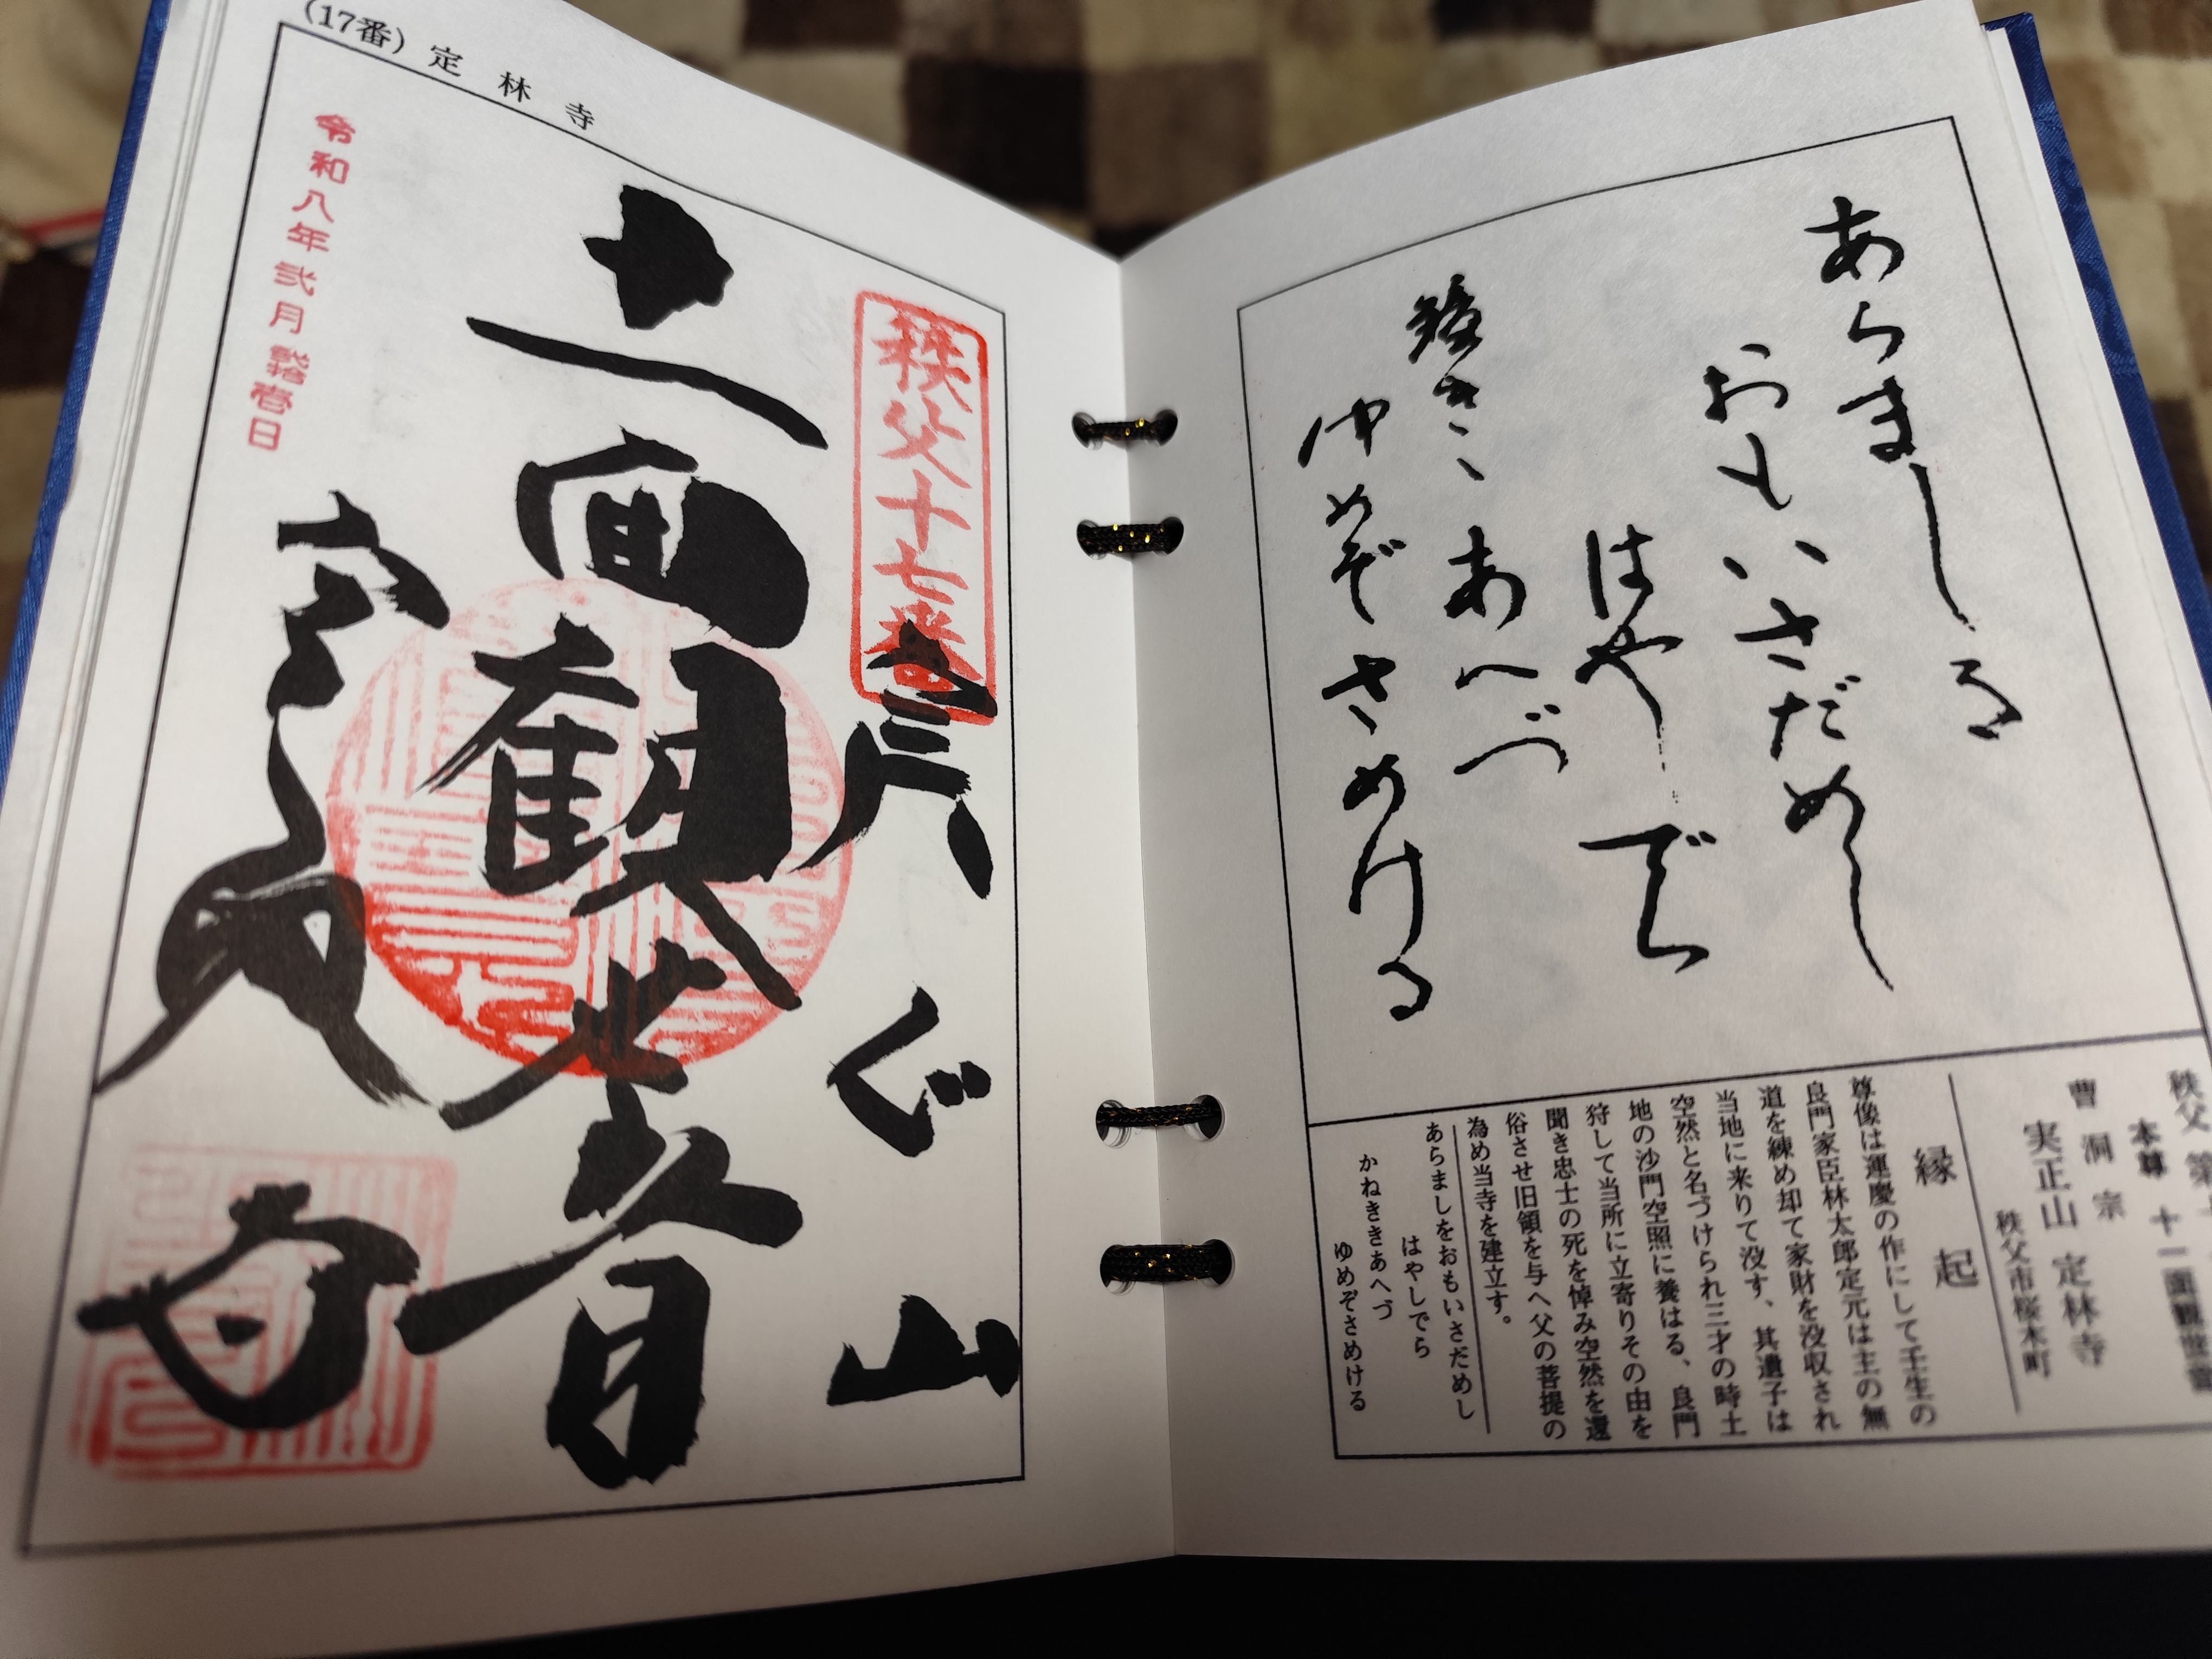 あらましを
おもいさだめし
はやしでら
鐘きゝあへづ
ゆめぞさめける
本尊 十一面観世音
曹洞宗
実正山 定林寺
秩父市桜木町
縁起
尊像は運慶の作にして壬生の
良門家臣林太郎定元は主の無
道を練め却て家財を没収され
当地に来りて没す、其遺子は
空然と名づけられ三才の時土
地の沙門空照に養はる、良門
狩して当所に立寄りその由を
聞き忠士の死を悼み空然を還
俗させ旧領を与へ父の菩提の
為め当寺を建立す。
あらましをおもいさだめし
はやしでら
かねききあへづ
ゆめぞさめける
(17番) 定林寺
秩父十七番
十一面観世音
定林寺
令和八年弐月弐拾壱日